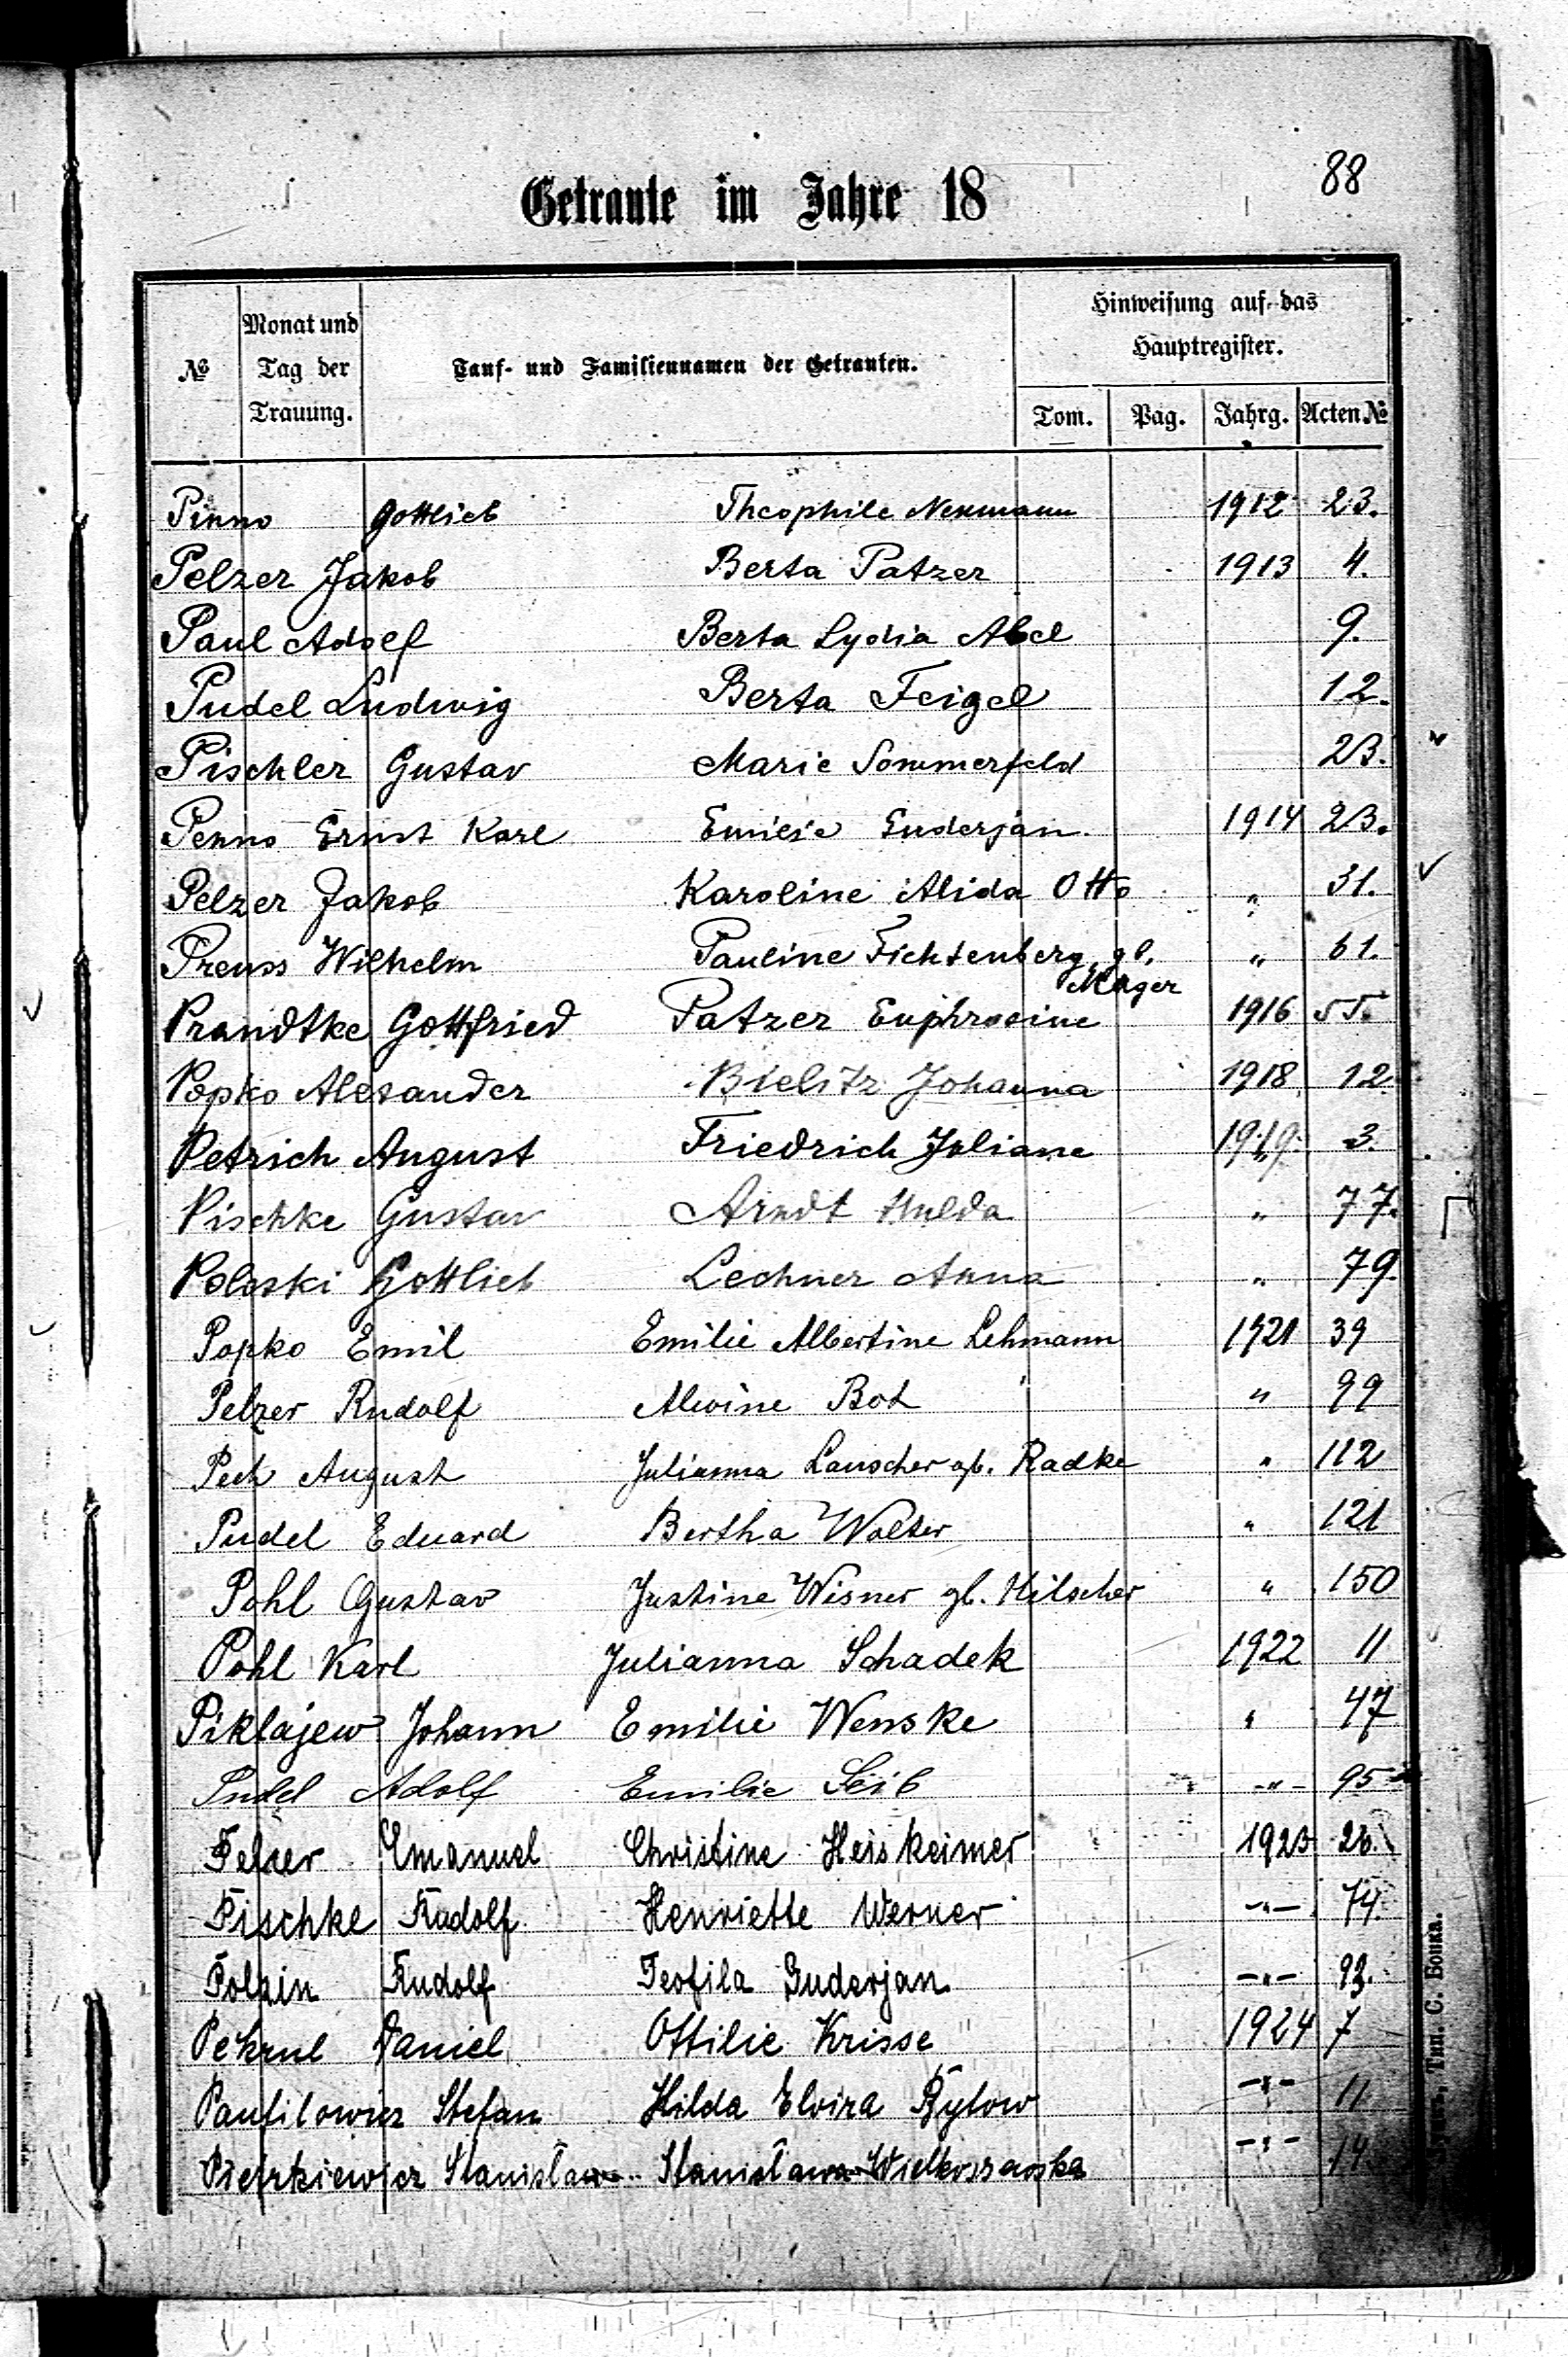 88
Getraute im Jahre 18
№ Monat und Tag der Trauung. Tauf- und Familiennamen der Getrauten. Hinweisung auf das Hauptregister.
Tom. Pag. Jahrg. Acten №
Pinno Gottlieb Theophile Neumann 1912 23.
Pelzer Jakob Berta Patzer 1913 4.
Paul Adolf Berta Lydia Abel 9.
Pudel Ludwig Berta Feigel 12.
Pischler Gustav Marie Sommerfeld 23.
Penno Ernst Karl Emilie Guderjan 1914 23.
Pelzer Jakob Karoline Alida Otto " 31.
Preuss Wilhelm Pauline Fichtenberg, gb. " 61.
Mager
Prandtke Gottfried Patzer Euphrosine 1916 55.
Popko Alexander Bielitz Johanna 1918 12.
Petrich August Friedrich Juliane 1919. 3.
Pischke Gustav Arndt Hulda " 77.
Poloski Gottlieb Lechner Anna " 79.
Popko Emil Emilie Albertine Lehmann 1921 39
Pelzer Rudolf Alwine Bot " 99
Pech August Julianna Lauscher gb. Radke " 112
Pudel Eduard Bertha Wolter " 121
Pohl Gustav Justine Wisner gb. Hilscher " 150
Pohl Karl Julianna Schadek 1922 11
Piklajew Johann Emilie Wenske " 47
Pudel Adolf Emilie Seib -"- 95
Pelzer Emanuel Christine Heiskeimer 1923 26.
Pischke Rudolf Henriette Werner -"- 74.
Polzin Rudolf Teofila Guderjan -"- 93.
Pekrul Daniel Ottilie Krisse 1924 7
Panfilowicz Stefan Hilda Elvira Rylow -"- 11
Pietrkiewicz Stanisław Stanisława -"- 14
Тип. С. Бонка.